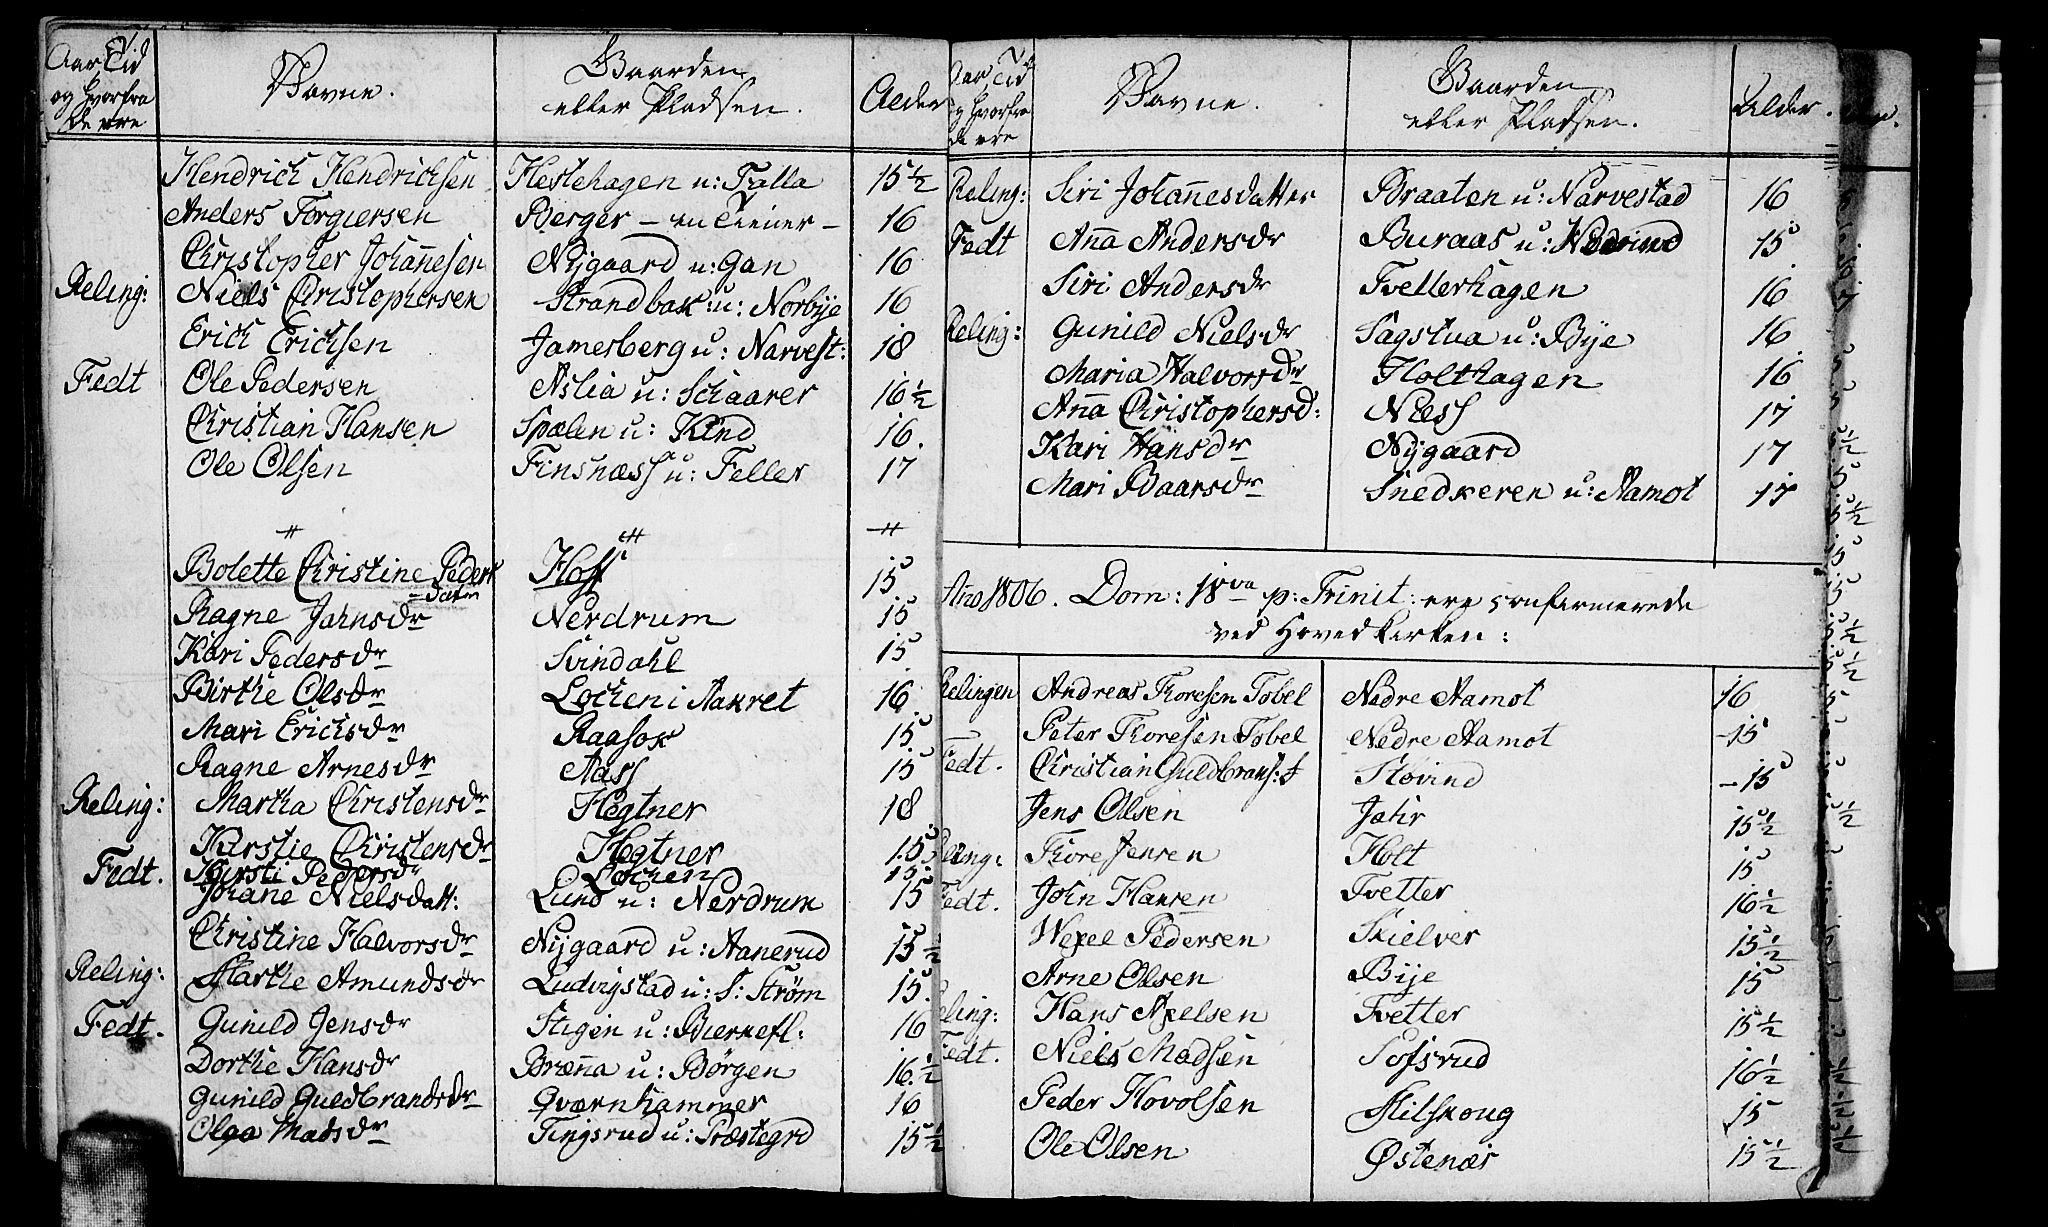 Aar Tid
og hvorfra
de ere
Navne.
Gaarden
eller Pladsen.
Alder
Hendrich Hendrichsen Hestehagen u: Falla 15 1/2
Anders Torgiersen Berger - en Tiener - 16
Christopher Johannesen Nygaard u: Gan 16
Reling: Niels Christophersen Strandbak u: Norbye 16
Erich Erichsen Jamerberg u: Narvest: 18
Fedt Ole Pedersen Aslia u: Schaarer 16 1/2
Christian Hansen Spælen u: Kind 16.
Ole Olsen Finsnæss u: Feller 17
Bolette Christine Peders Hoff 15
-datter
Ragne Jahnsdr Nerdrum 15
Kari Pedersdr Svindahl 15
Birthe Olsdr Lochen i Aakret 16
Mari Erichsdr Raasok 15
Ragne Arnesdr Aass 15
Reling: Martha Christensdr Hegtner 18
Kirstie Christensdr Hegtner 15
Fedt. Kirsti Pedersdr Lochen 15
Johane Nielsdatt: Lund u: Nerdrum 15
Christine Halvorsdr Nygaard u: Aanerud 15 1/2
Reling: Marthe Amundsdr Ludvigstad u: S: Strøm 15.
Fedt. Gunild Jensdr Stigen u: Bierkefl: 16
Dorthe Hansdr Brænna u: Børgen 16 1/2
Gunild Guldbrandsdr Qværnhammer 16
Olga Madsdr Tingsrud u: Præstegrd 15 1/2
Aar Tid
og hvorfra
de ere
Navne.
Gaarden
eller Pladsen.
Alder.
Reling: Siri Johannesdatter Braaten u: Narvestad 16
Fedt Anna Andersdr Buraas u: 15
Siri Andersdr Tvetterhagen 16
Reling: Gunild Nielsdr Sagstua u: Bye 16
Maria Halvorsdr Holthagen 16
Anna Christophersd: Næss 17
Kari Hansdr Nygaard 17
Mari Baarsdr Snedkeren u: Aamot 17
Ano 1806. Dom: 18va p: Trinit: ere confirmerede
ved Hovedkirken:
Relingen Andreas Thoresen Tobel Nedre Aamot 16
Peter Thoresen Tobel Nedre Aamot -15
Fedt. Christian Guldbrans: Støvind -15
Jens Olsen Jahr 15 1/2
Reling: Thore Jensen Holt 15
Fedt. John Hansen Tvetter 16 1/2
Wexel Pedersen Skielver 15 1/2
Arne Olsen Bye 15
Reling: Hans Axelsen Tvetter 15 1/2
Fedt. Niels Madsen Sofsrud 16 1/2
Peder Hovolsen Hilskoug 15
Ole Olsen Østenæs 15 1/2